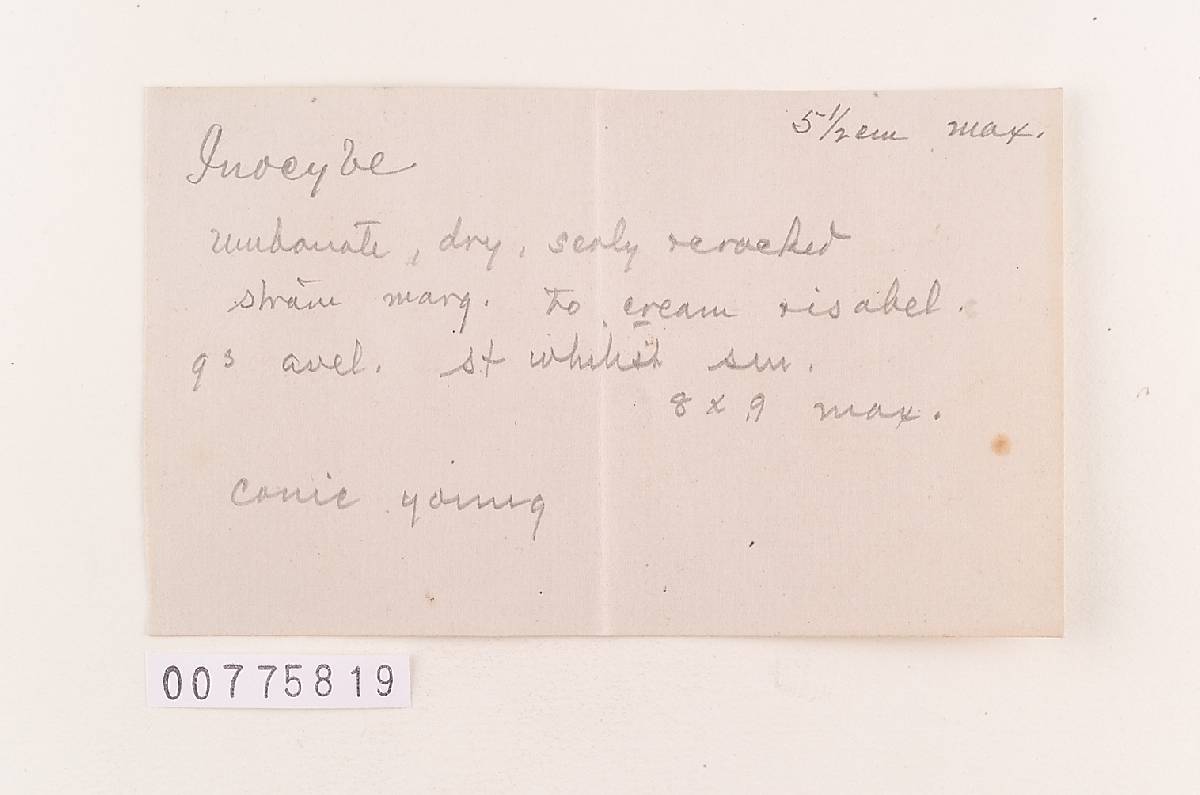 5 1/2 cm max.
Inocybe
umbonate, dry, scaly & cracked
marg. to cream & isabel.
gs avel. st whitish sm.
8 x 9 max.
conic young
00775819